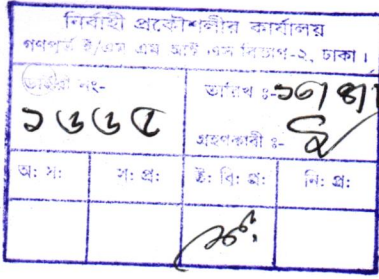 নির্বাহী প্রকৌশলীর কার্যালয়
গণপূর্ত ই/এম এম আই এস বিভাগ-২, ঢাকা।
ডাইরী নং- তারিখ ঃ-
১৬৬৫
গ্রহণকারী ঃ-
অ: স: স: প্র: ই: বি: প্র: নি: প্র: